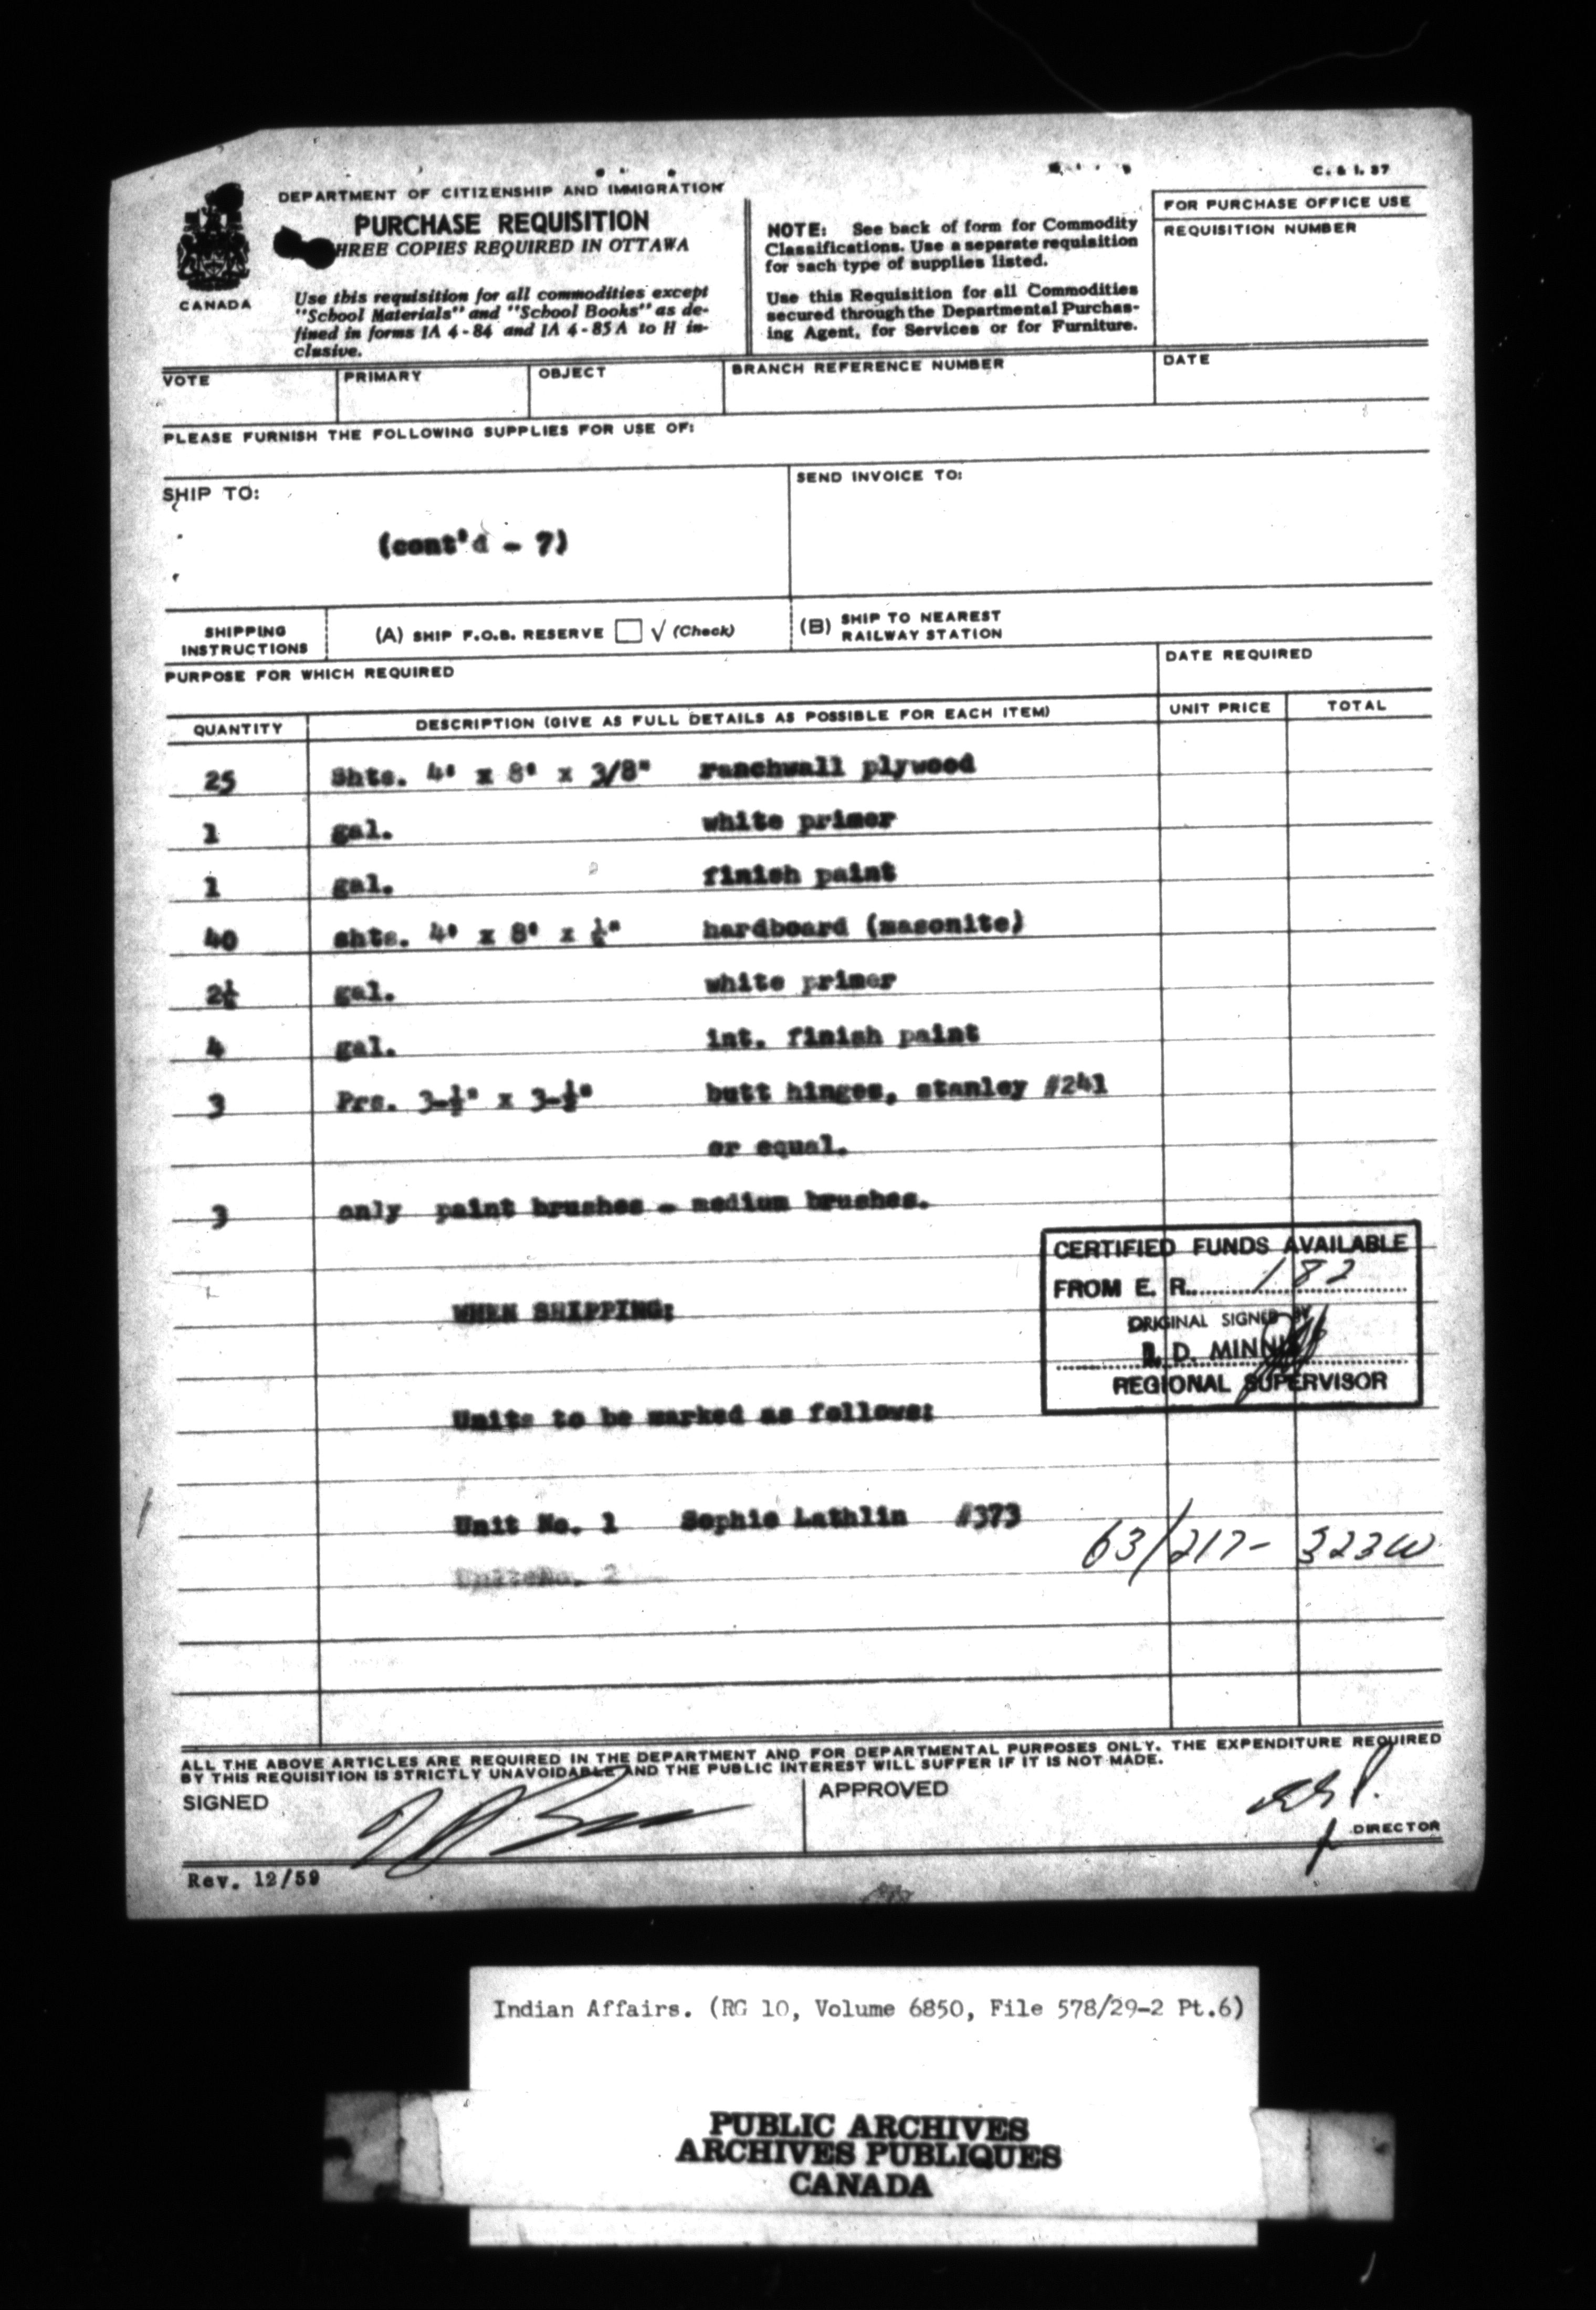 C. & I. 37
DEPARTMENT OF CITIZENSHIP AND IMMIGRATION
PURCHASE REQUISITION
HREE COPIES REQUIRED IN OTTAWA
CANADA
Use this requisition for all commodities except
"School Materials" and "School Books" as de-
fined in forms IA 4-84 and IA 4-85A to H in-
clusive.
NOTE: See back of form for Commodity
Classifications. Use a separate requisition
for each type of supplies listed.
Use this Requisition for all Commodities
secured through the Departmental Purchas-
ing Agent, for Services or for Furniture.
FOR PURCHASE OFFICE USE
REQUISITION NUMBER
VOTE PRIMARY OBJECT BRANCH REFERENCE NUMBER DATE
PLEASE FURNISH THE FOLLOWING SUPPLIES FOR USE OF:
SHIP TO: SEND INVOICE TO:
(cont'd - 7)
SHIPPING
INSTRUCTIONS
(A) SHIP F.O.B. RESERVE □ √ (Check)
(B) SHIP TO NEAREST
RAILWAY STATION
PURPOSE FOR WHICH REQUIRED DATE REQUIRED
QUANTITY DESCRIPTION (GIVE AS FULL DETAILS AS POSSIBLE FOR EACH ITEM) UNIT PRICE TOTAL
25 Shts. 4' x 8' x 3/8" ranchwall plywood
1 gal. white primer
1 gal. finish paint
40 shts. 4' x 8' x hardboard (masonite)
gal. white primer
4 gal. int. finish paint
3 Prs. 3-½" x 3-½" butt hinges, stanley #241
or equal.
3 only paint brushes - medium brushes.
CERTIFIED FUNDS AVAILABLE
FROM E. R. 182
ORIGINAL SIGNED BY
D. MINNI
REGIONAL SUPERVISOR
WHEN SHIPPING:
Units to be marked as follows:
Unit No. 1 Sophie Lathlin #373
63/217- 323W
No. 2
ALL THE ABOVE ARTICLES ARE REQUIRED IN THE DEPARTMENT AND FOR DEPARTMENTAL PURPOSES ONLY. THE EXPENDITURE REQUIRED
BY THIS REQUISITION IS STRICTLY UNAVOIDABLE AND THE PUBLIC INTEREST WILL SUFFER IF IT IS NOT MADE.
SIGNED APPROVED
DIRECTOR
Rev. 12/59
Indian Affairs. (RG 10, Volume 6850, File 578/29-2 Pt.6)
PUBLIC ARCHIVES
ARCHIVES PUBLIQUES
CANADA